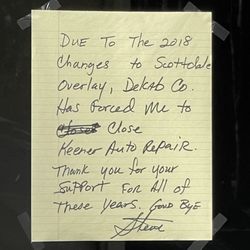 Due To The 2018
Changes to Scottdale
Overlay, Dekab Co.
Has Forced Me to
Close
Keener Auto Repair.
Thank you for your
Support For All of
These Years. Good Bye
Steve